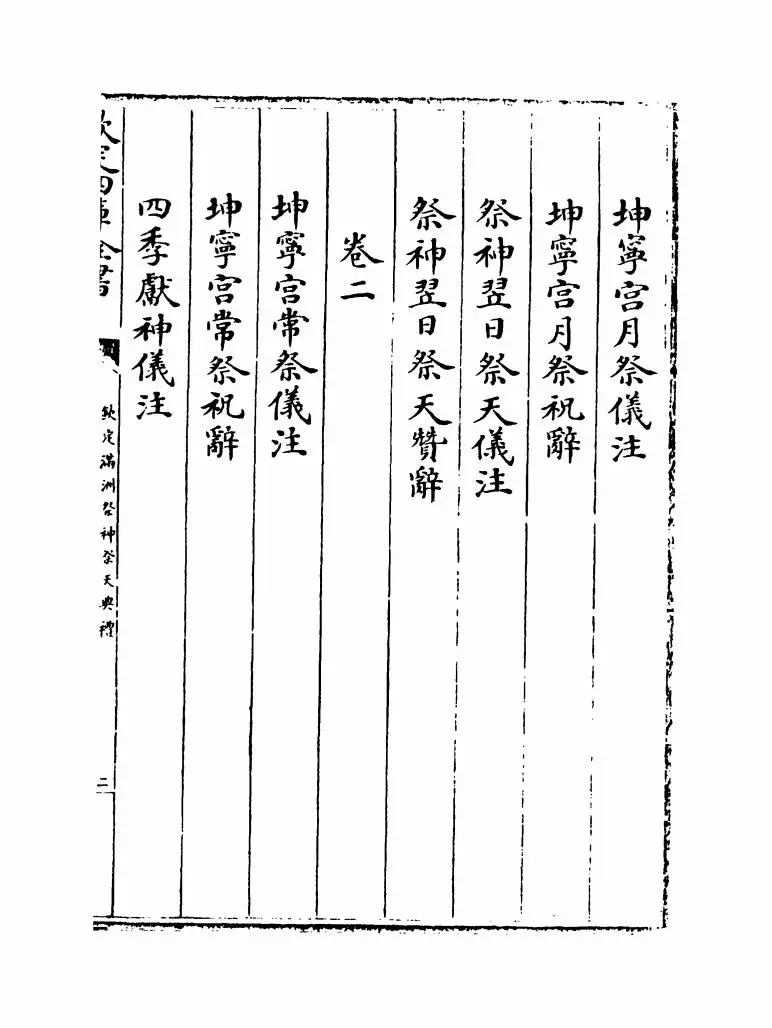 坤寧宮月祭儀注
坤寧宮月祭祝辭
祭神翌日祭天儀注
祭神翌日祭天贊辭
卷二
坤寧宮常祭儀注
坤寧宮常祭祝辭
四季獻神儀注
欽定四庫全書
欽定滿洲祭神祭天典禮
二